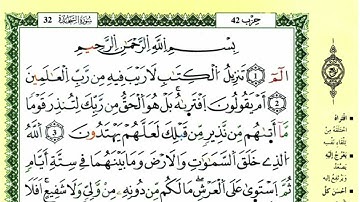 حِزْب 42
سُورَةُ السَّجْدَةِ 32
بِسْمِ اللَّهِ الرَّحْمَٰنِ الرَّحِيمِ
الٓمٓ ① تَنزِيلُ الْكِتَٰبِ لَا رَيْبَ فِيهِ مِن رَّبِّ الْعَٰلَمِينَ
② أَمْ يَقُولُونَ افْتَرَىٰهُ بَلْ هُوَ الْحَقُّ مِن رَّبِّكَ لِتُنذِرَ قَوْمًا
مَّا أَتَىٰهُم مِّن نَّذِيرٍ مِّن قَبْلِكَ لَعَلَّهُمْ يَهْتَدُونَ ③ اللَّهُ
الَّذِى خَلَقَ السَّمَٰوَٰتِ وَالْأَرْضَ وَمَا بَيْنَهُمَا فِى سِتَّةِ أَيَّامٍ
ثُمَّ اسْتَوَىٰ عَلَى الْعَرْشِ مَا لَكُم مِّن دُونِهِ مِن وَلِىٍّ وَلَا شَفِيعٍ أَفَلَا
افتراه